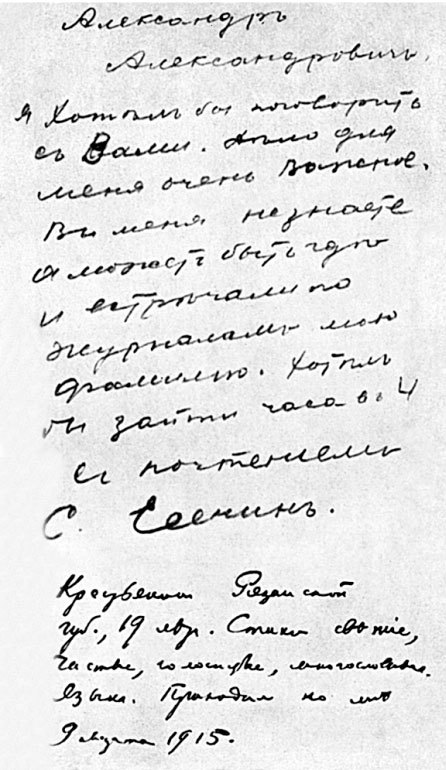 Александръ
Александровичъ.
Я хотѣлъ бы поговорить
съ Вами. Дѣло для
меня очень важное.
Вы меня не знаете
а можетъ быть гдѣ
и встрѣчали по
журналамъ мою
фамилію. Хотѣлъ
бы зайти часа въ 4
Съ почтеніемъ
С. Есенинъ.
Крестьянин Рязанской
губ., 19 лет. Стихи свежие,
чистые, голосистые, многословные.
Язык. Приходил ко мне
9 марта 1915.